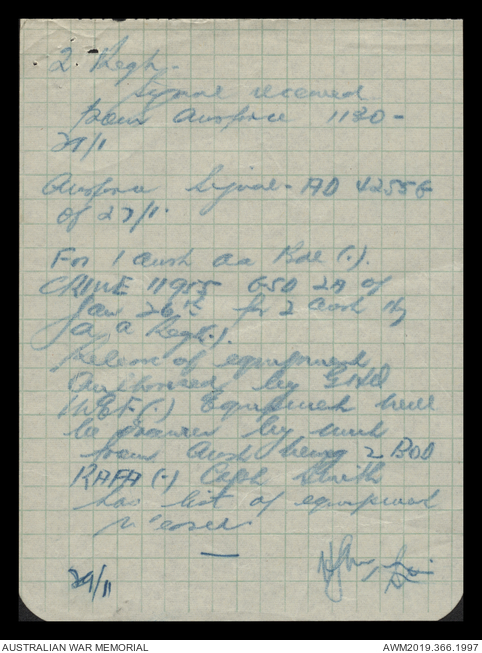 2 Regt.
Signal received
from Ausforce 1130 -
29/1
Ausforce Signal - AD 42556
of 27/1.
For 1 Aust AA Bde (.).
CRIME 11955 GSD 2A of
Jan 26th for 2 Aust Hy
A A Regt (.).
Release of equipment
authorised by GHQ
M.E.F. (.) Equipment will
be drawn by unit
from Aust being 2 BOD
RAFA (.) Capt Smith
has list of equipment
29/1
AUSTRALIAN WAR MEMORIAL
AWM2019.366.1997